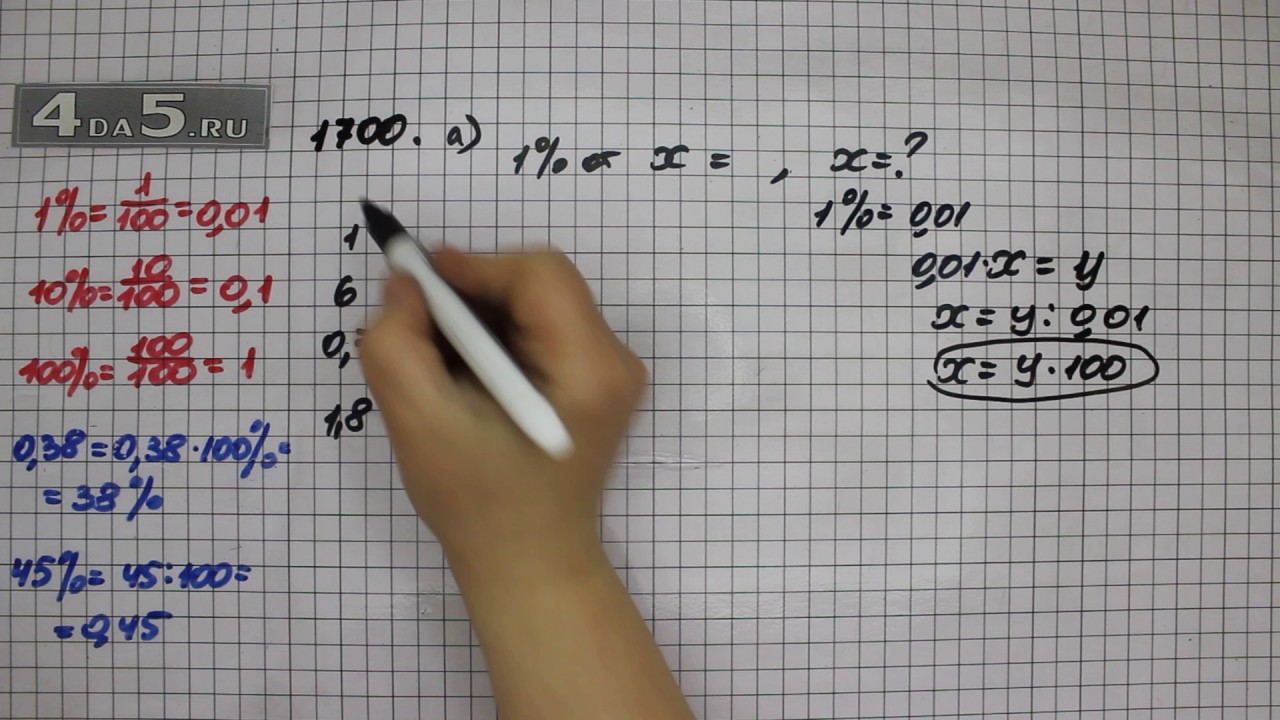 4DA5.RU
1700. а) 1% от x = , x=?
1%= 1/100 =0,01
10%= 10/100 = 0,1
100%= 100/100 = 1
0,38=0,38·100%=
=38%
45%= 45:100=
=0,45
1
6
0,
1,8
1%= 0,01
0,01·x = y
x = y : 0,01
x = y·100